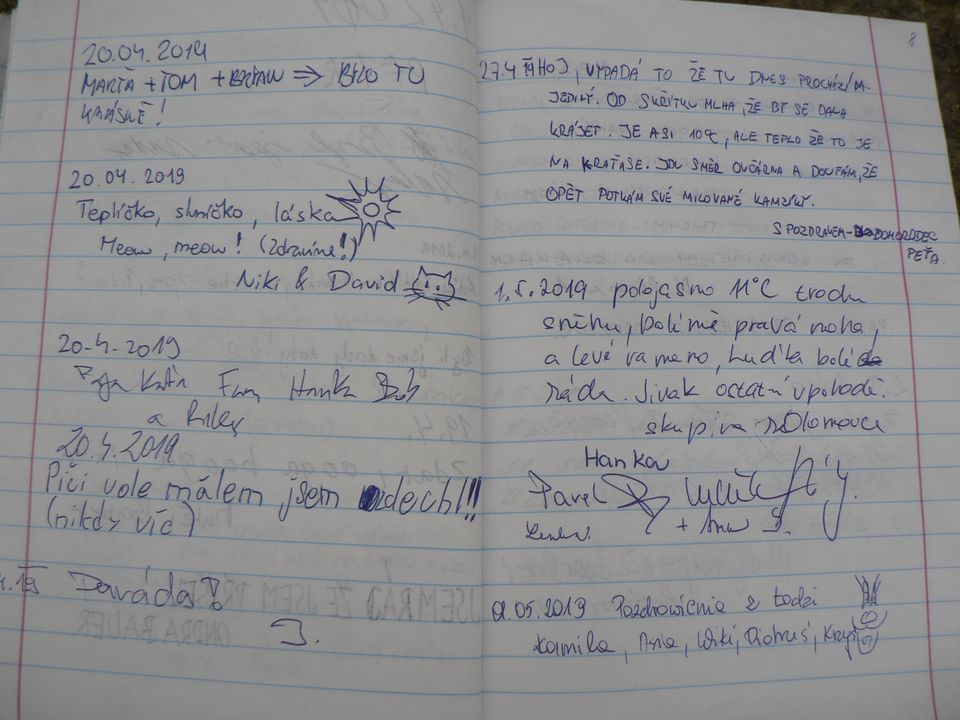 20.04.2019
MARŤA + TOM + → BYLO TU
KRÁSNĚ!
20.04.2019
Teplíčko, sluníčko, láska
Meow, meow! (Zdravíme!!)
Niki & David
20.4.2019
Katka Hanka Bob
a Riley
20.4.2019
Piči vole málem jsem zdech!!!
(nikdy víc)
4.19 Paráda!!
J.
8
27.4 19 AHOJ, VYPADÁ TO ŽE TU DNES PROCHÁZÍM
JEDINÝ. OD SKŘÍTKU MLHA, ŽE BY SE DALA
KRÁJET. JE ASI 10°C, ALE TEPLO ŽE TO JE
NA KRAŤASE. JDU SMĚR OVČÁRNA A DOUFÁM, ŽE
OPĚT POTKÁM SVÉ MILOVANÉ KAMZÍKY.
S POZDRAVEM - DOHORODEC
PEŤA.
1.5.2019 polojasno 11°C trochu
sněhu, bolí mě pravá noha,
a levé rameno, Luďka bolí
záda. Jinak ostatní v pohodě.
skupina z Olomouce
Hanka
Pavel
Lenka. +
01.05.2019 Pozdrowienia z Łodzi
Kamila, Ania, Wiki, Piotruś, Krzyś